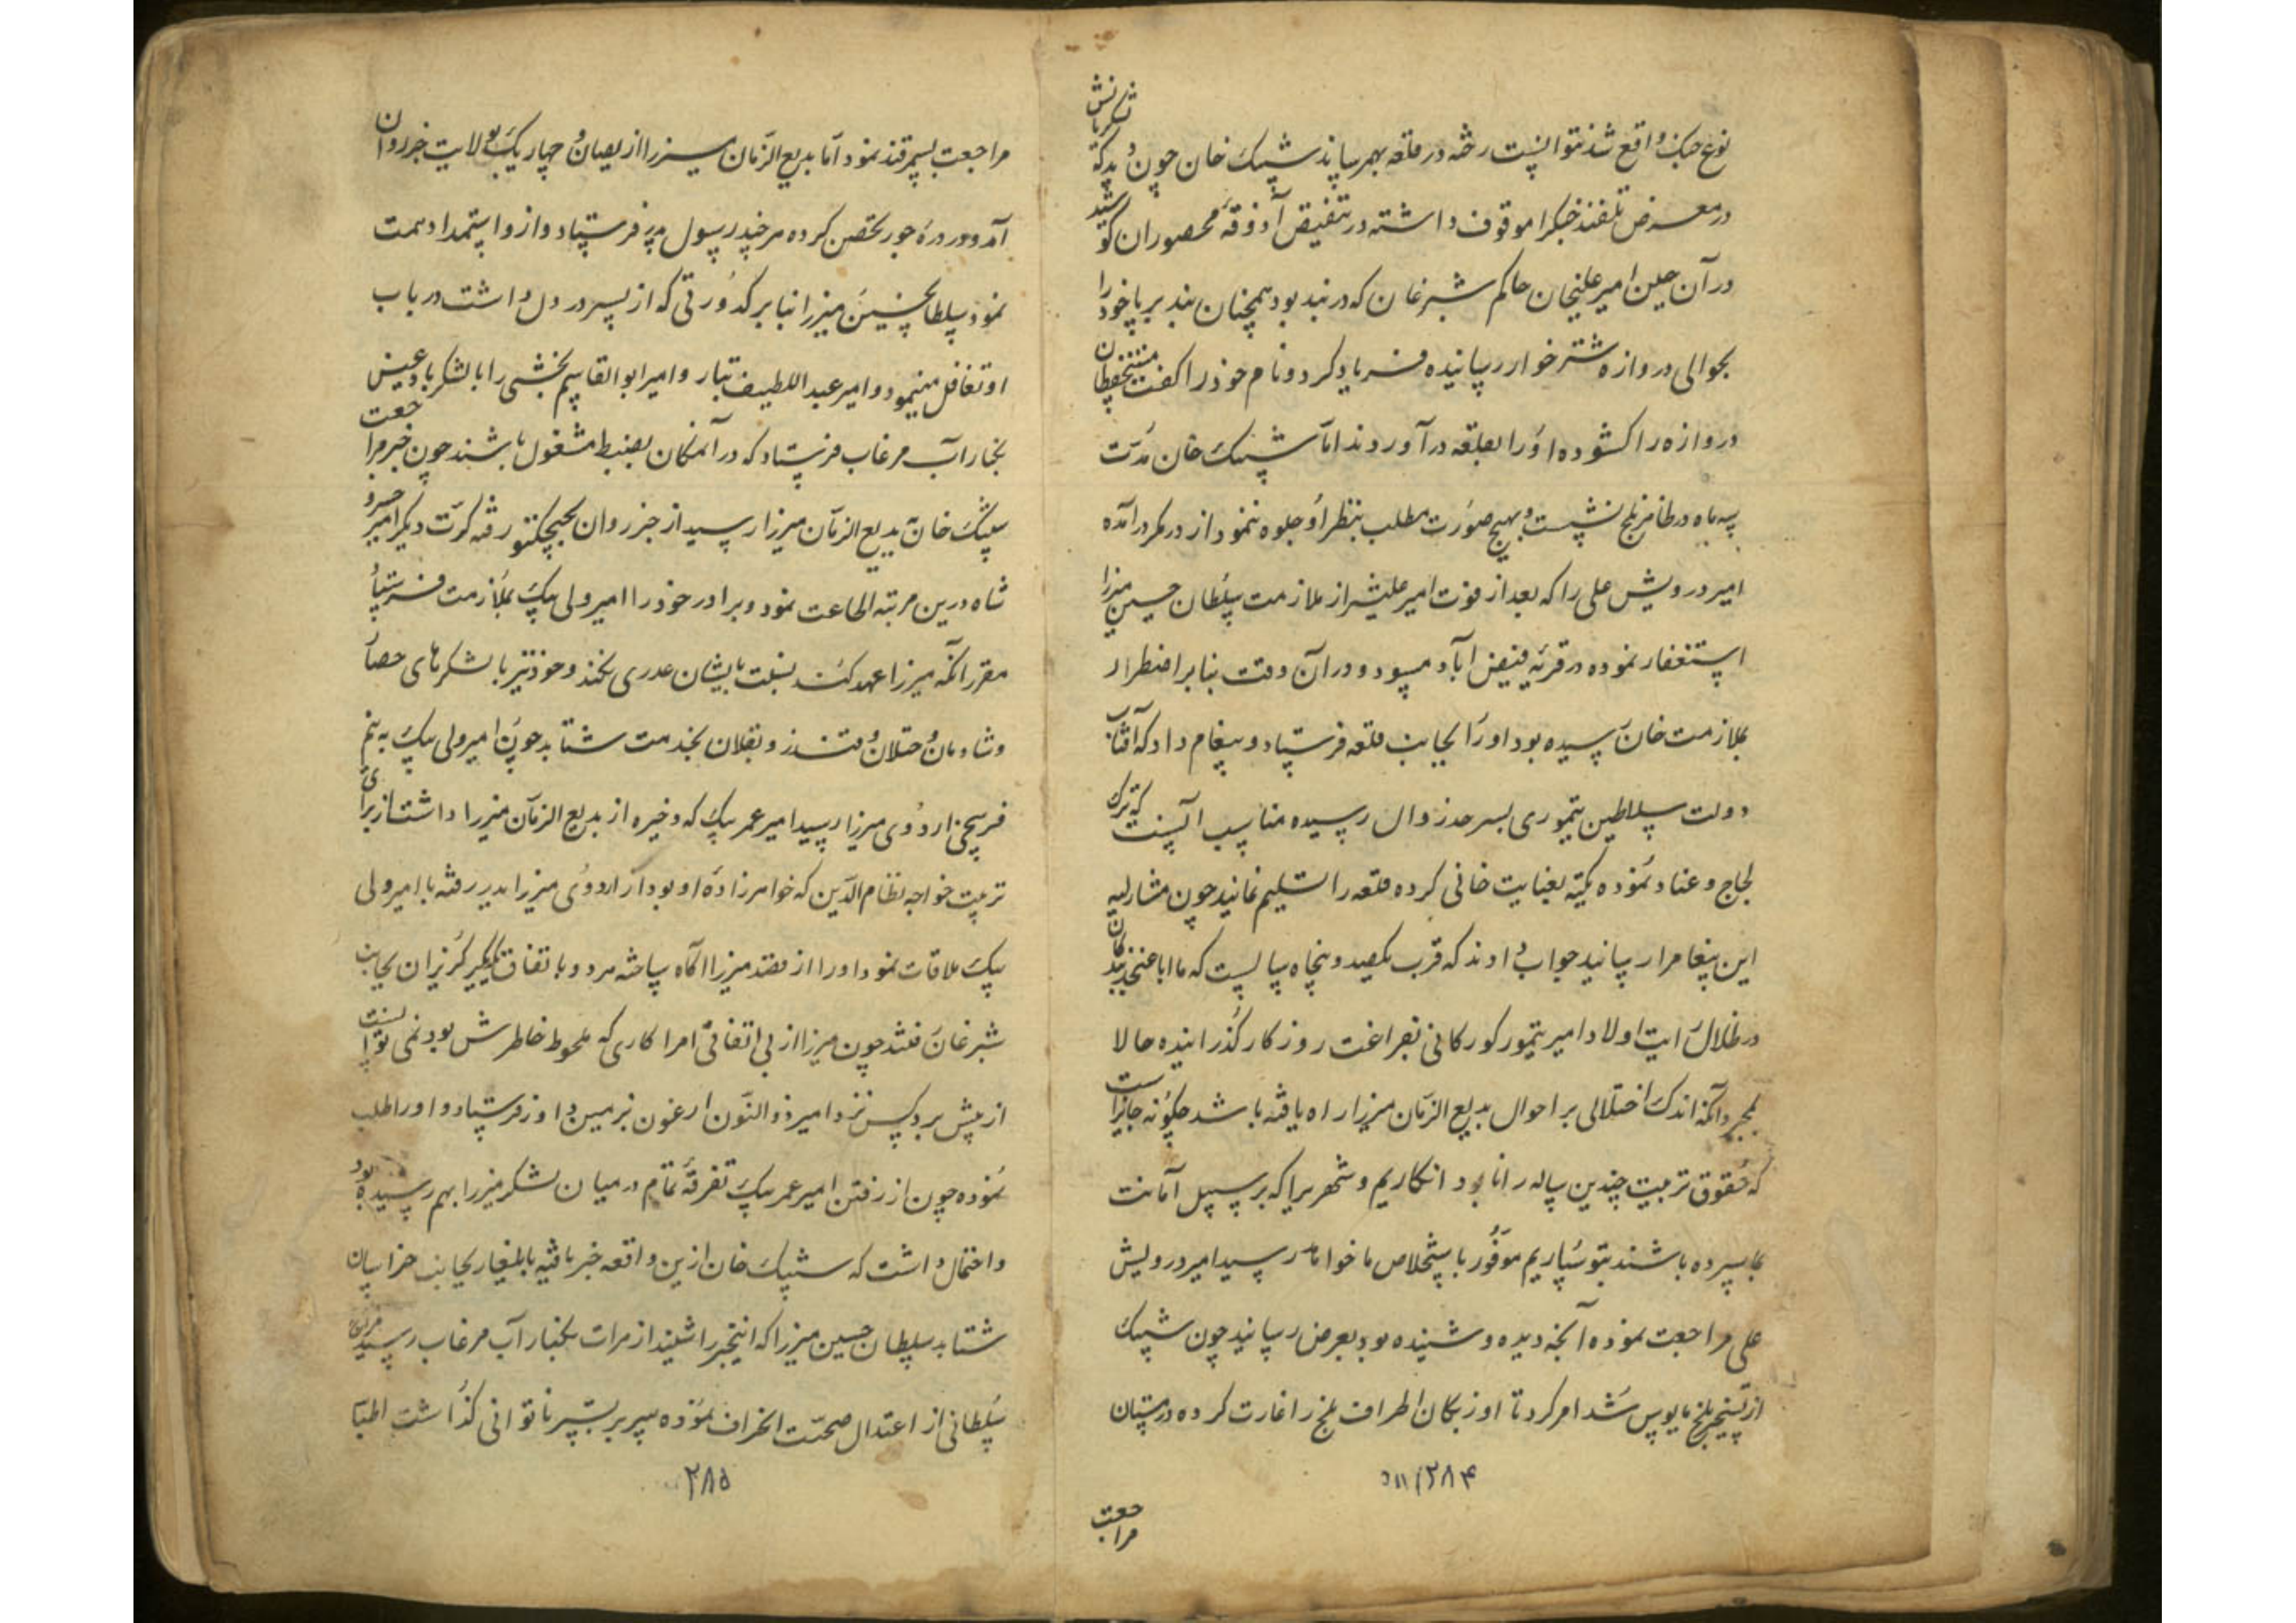 نوع جنک واقع شد نتوانست رخنه در قلعه بهم رساند شیبک خان چون دید که
لشکریانش
در معرض تلفند جنک را موقوف داشته در تنقیض آذوقه محصوران کوشید
در آن حین امیر علیخان حاکم شبرغان که در بند بود همچنان بند بر پا خود را
بحوالی دروازه شترخوار رسانیده فریاد کرد و نام خود را کفت مستحفظان
دروازه را کشوده او را بقلعه در آوردند اما شیبک خان مدت
سه ماه در ظاهر بلخ نشست و بهیچ صورت مطلب بنظر او جلوه ننمود از در مکر درامده
امیر درویش علی را که بعد از فوت امیر علیشیر از ملازمت سلطان حسین میرزا
استغفار نموده در قریه فیض اباد میبود و در آن وقت بنا بر اضطرار
بملازمت خان رسیده بود او را بجانب قلعه فرستاد و پیغام داد که آفتاب
دولت سلاطین تیموری بسر حد زوال رسیده مناسب آنست که ترک
لجاج و عناد نموده تکیه بعنایت خانی کرده قلعه را تسلیم نمایند چون مشارالیه
این پیغام را رسانید جواب دادند که قرب یکصد و پنجاه سالست که ما ابا عنجد بندکان
در ظلال رایت اولاد امیر تیمور کورکانی بفراغت روزکار کذرانیده حالا
بمجرد آنکه اندک اختلالی بر احوال بدیع الزمان میرزا راه یافته باشد چکونه جایز است
که حقوق تربیت چندین ساله را نابود انکاریم و شهریرا که بر سبیل آمانت
بما سپرده باشند بتو سپاریم موفور باستخلاص ما خواهد رسید امیر درویش
علی مراجعت نموده آنچه دیده و شنیده بود بعرض رسانید چون شیبک
از تسخیر بلخ مایوس شد امر کرد تا اوزبکان اطراف بلخ را غارت کرده در مستان
۲۸۴
مراجعت
مراجعت بسمرقند نمود اما بدیع الزمان میرزا از بصیان و چهاریک بولایت خزروان
آمد و در دره جور تحصن کرده هر چند رسول پدر فرستاد و از او استمداد همت
نمود سلطانحسین میرزا بنا بر کدورتی که از پسر در دل داشت در باب
او تغافل مینمود و امیر عبد اللطیف تبار و امیر ابو القاسم بخشی را با لشکر بادغیس
بکنار آب مرغاب فرستاد که در آنمکان بضبط مشغول باشند چون خبر مراجعت
شیبک خان بدیع الزمان میرزا رسید از خزروان بچیچکتو رفته کرت دیکر امیر خسرو
شاه درین مرتبه اطاعت نمود و برادر خود را امیر ولی بیک بملازمت فرستاد
مقرر آنکه میرزا عهد کند نسبت بایشان غدری نکند و خود نیز با لشکرهای حصار
و شادمان و ختلان و قندز و بقلان بخدمت شتابد چون امیر ولی بیک به نیم
فرسخی اردوی میرزا رسید امیر عمر بیک که ذخیره از بدیع الزمان میرزا داشت از برای
تربیت خواجه نظام الدین که خواهرزاده او بود از اردوی میرزا بدر رفته با امیر ولی
بیک ملاقات نمود او را از قصد میرزا آکاه ساخته هر دو باتفاق یکدیکر کریزان بجانب
شبرغان رفتند چون میرزا از بی اتفاقی امرا کاری که ملحوظ خاطرش بود نمی توانست
از پیش برد کس نزد امیر ذوالنون ارغون بزمین داور فرستاد و او را طلب
نموده چون از رفتن امیر عمر بیک تفرقه تمام در میان لشکر میرزا بهم رسیده بود
و احتمال داشت که شیبک خان ازین واقعه خبر یافته بایلغار بجانب خراسان
شتابد سلطان حسین میرزا که اینخبر را شنید از هرات بکنار آب مرغاب رسید مزاج
سلطانی از اعتدال صحت انحراف نموده سر بر بستر ناتوانی کذاشت اطبا
۲۸۵